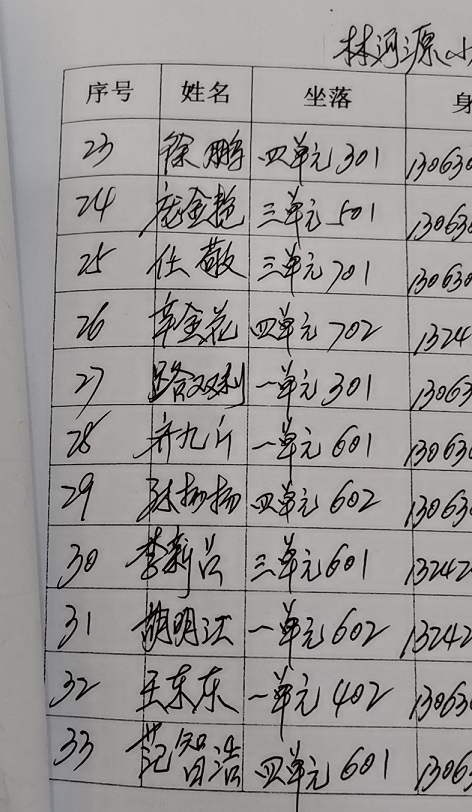 林河源小
序号 姓名 坐落 身
23 徐鹏 四单元301 130630
24 庞金艳 三单元501 130630
25 任敬 三单元701 130630
26 辛金花 四单元702 1324
27 路双利 一单元301 13063
28 齐九斤 一单元601 130630
29 张杨杨 四单元602 130630
30 李新占 三单元601 13242
31 胡明 一单元602 13242
32 王东东 一单元402 130630
33 范智浩 四单元601 1306